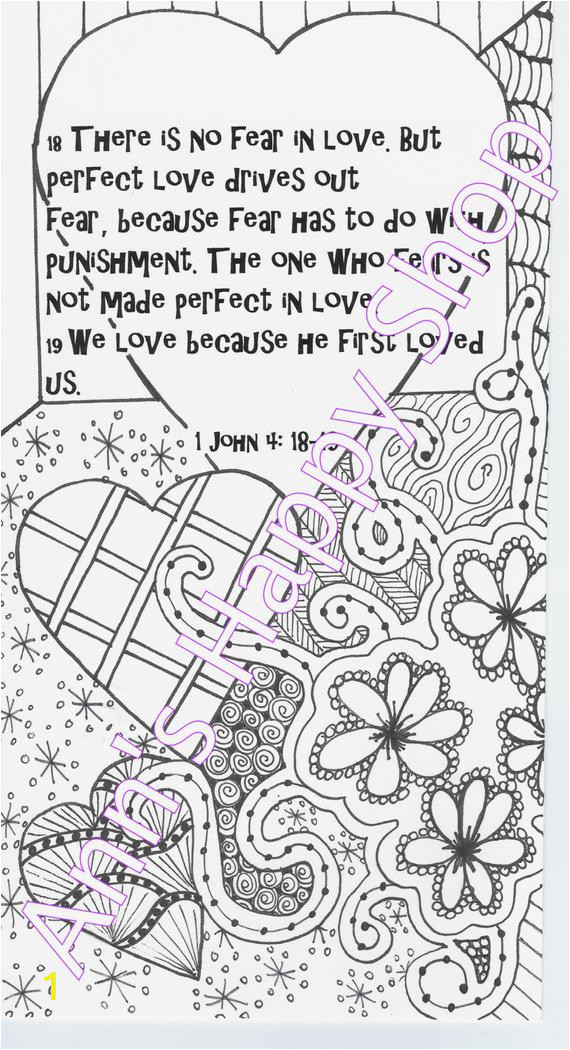 18 There is no Fear in Love. But
perfect Love drives out
Fear, because Fear has to do With
punishment. The one Who Fears is
Not Made perfect in Love
19 We Love because He First Loved
us.
1 John 4: 18-19
Ann's Happy Shop
1